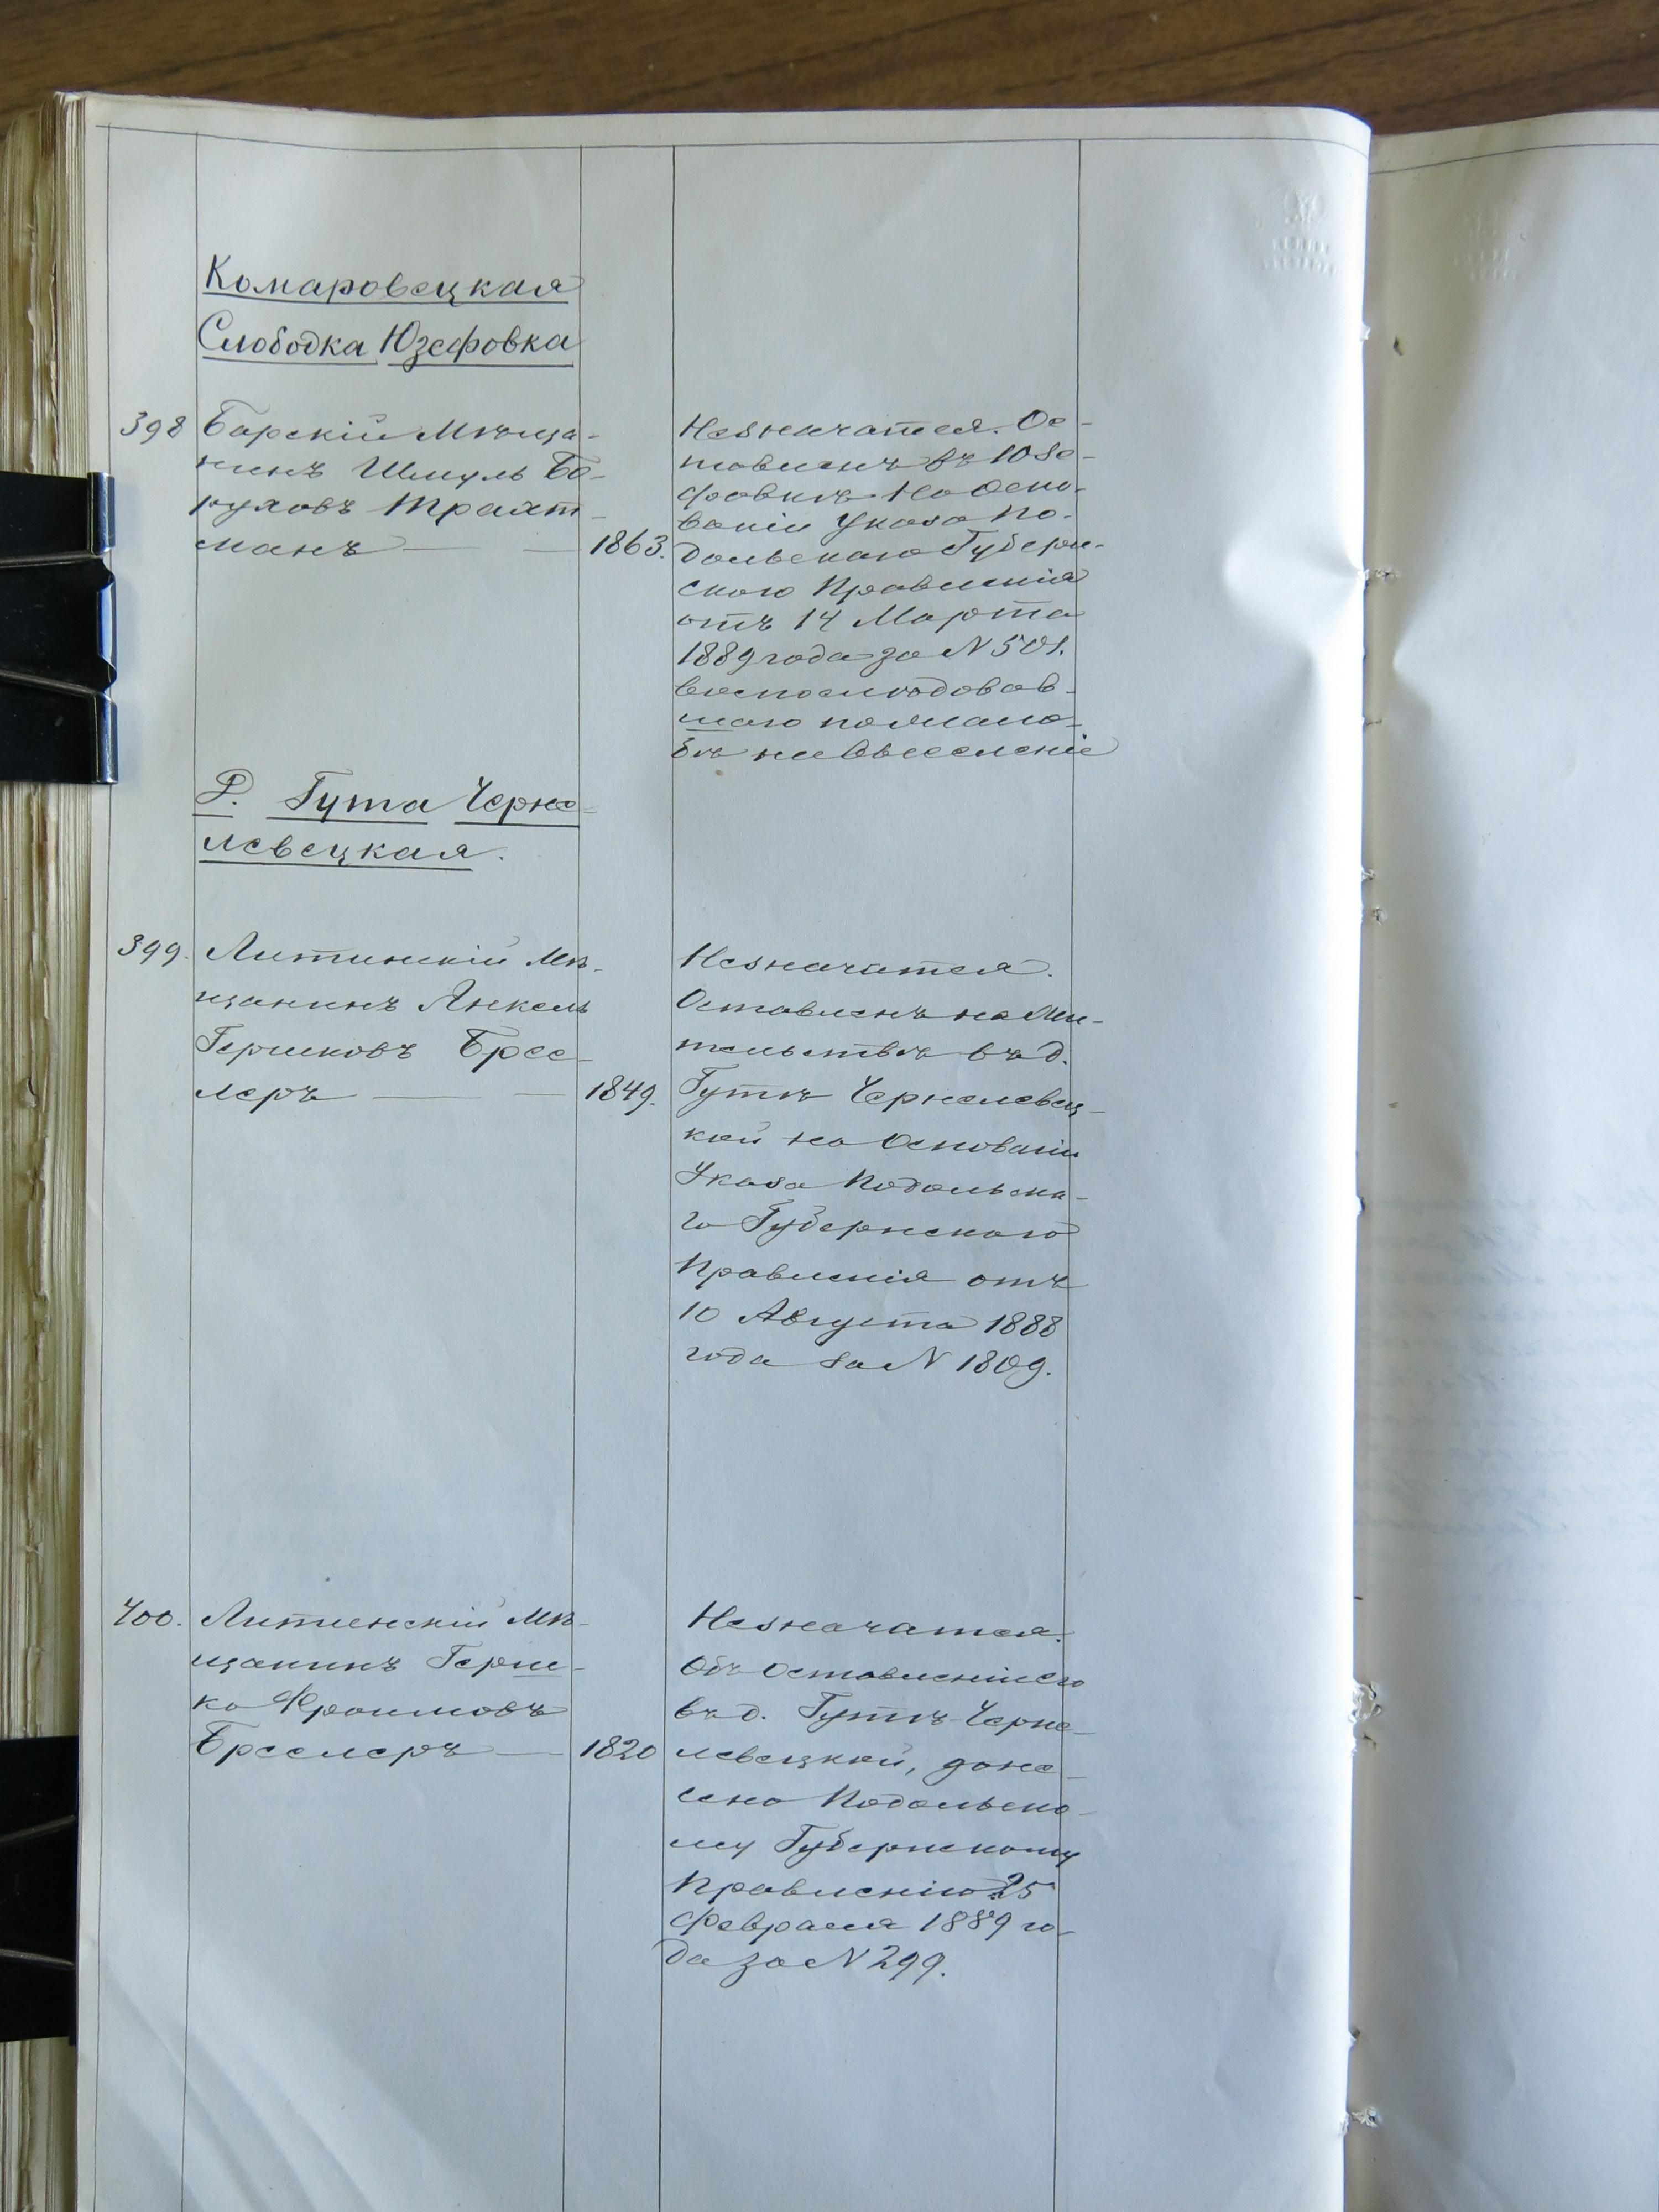 Комаровецкая
Слободка Юзефовка
398 Барскій Мѣща-
нинъ Шмуль Бо-
руховъ Трахт-
манъ — — 1863.
Незначатся. Ос-
тавленъ въ Юзе-
фовкѣ На Осно-
ваніи Указа По-
дольскаго Губерн-
скаго Правленія
отъ 14 Марта
1889 года за N 501.
въ послѣдовав-
шаго по жало-
бѣ на выселеніе
Р. Гута Черне-
левецкая.
399. Литинскій Мѣ-
щанинъ Янкель
Гершковъ Брес-
леръ — — 1849.
Незначатся.
Оставленъ на Жи-
тельствѣ въ д.
Гутѣ Чернелевец-
кой на Основаніи
Указа Подольска-
го Губернскаго
Правленія отъ
10 Августа 1888
года за N 1809.
400. Литинскій Мѣ-
щанинъ Герш-
ко Фроимовъ
Бреслеръ — 1820
Незначатся.
Объ Оставленіи его
въ д. Гутѣ Черне-
левецкой, доне-
сено Подольско-
му Губернскому
Правленію 25
февраля 1889 го-
да за N 299.